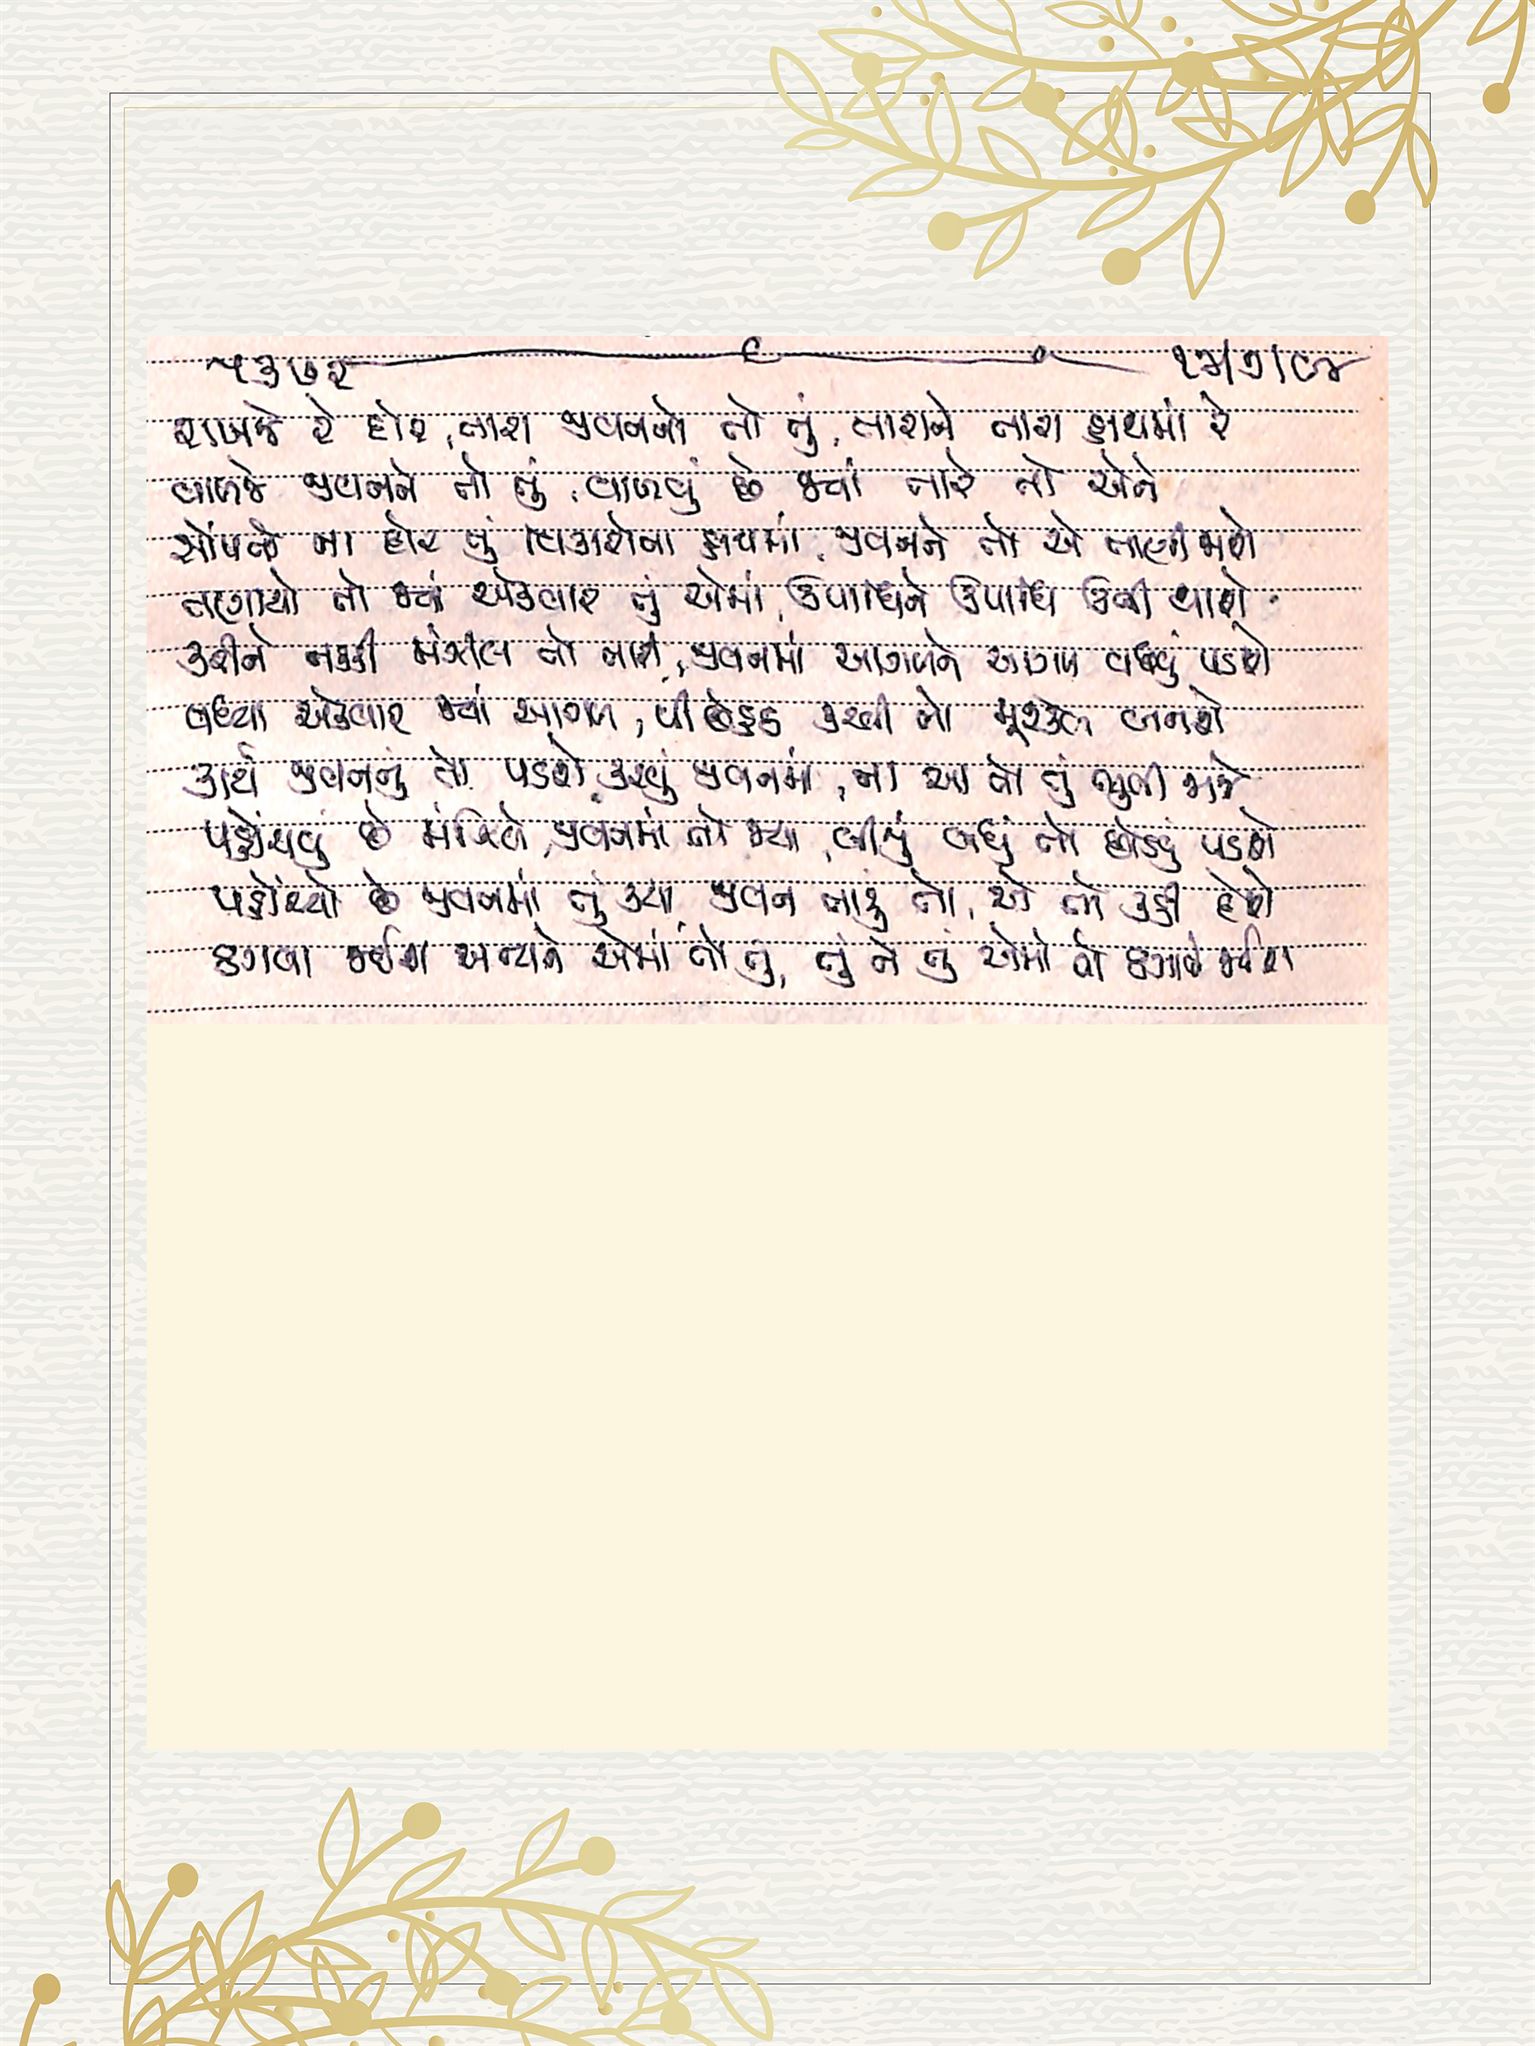 ૫૩૭૨ ૧૩/૭/૯૪
રાખજે રે દોર, તારા જીવનનો તો તું, તારાને તારા હાથમાં રે
વાળજે જીવનને તો તું, વાળવું છે જ્યાં તારે તો એને
સોંપજે ના દોર તું વિકારોના હાથમાં, જીવનને તો એ તાણી જાશે
તણાયો તો જ્યાં એકવાર તું એમાં, ઉપાધિને ઉપાધિ ઊભી થાશે
કરીને નક્કી મંઝીલ તો તારી, જીવનમાં આગળને આગળ વધવું પડશે
વધ્યા એકવાર જ્યાં આગળ, પીછેહઠ કરવી તો મુશ્કેલ બનશે
કાર્ય જીવનનું તો પડશે કરવું જીવનમાં, ના આ તો તું ભુલી જાજે
પહોંચવું છે મંઝિલે, જીવનમાં તો જ્યાં, બીજું બધું તો છોડવું પડશે
પહોંચ્યો છે જીવનમાં તું ક્યાં, જીવન તારું તો, એ તો કહી દેશે
ઠગવા જઈશ અન્યને એમાં તો તું, તું ને તું એમાં તો ઠગાતો જઈશ